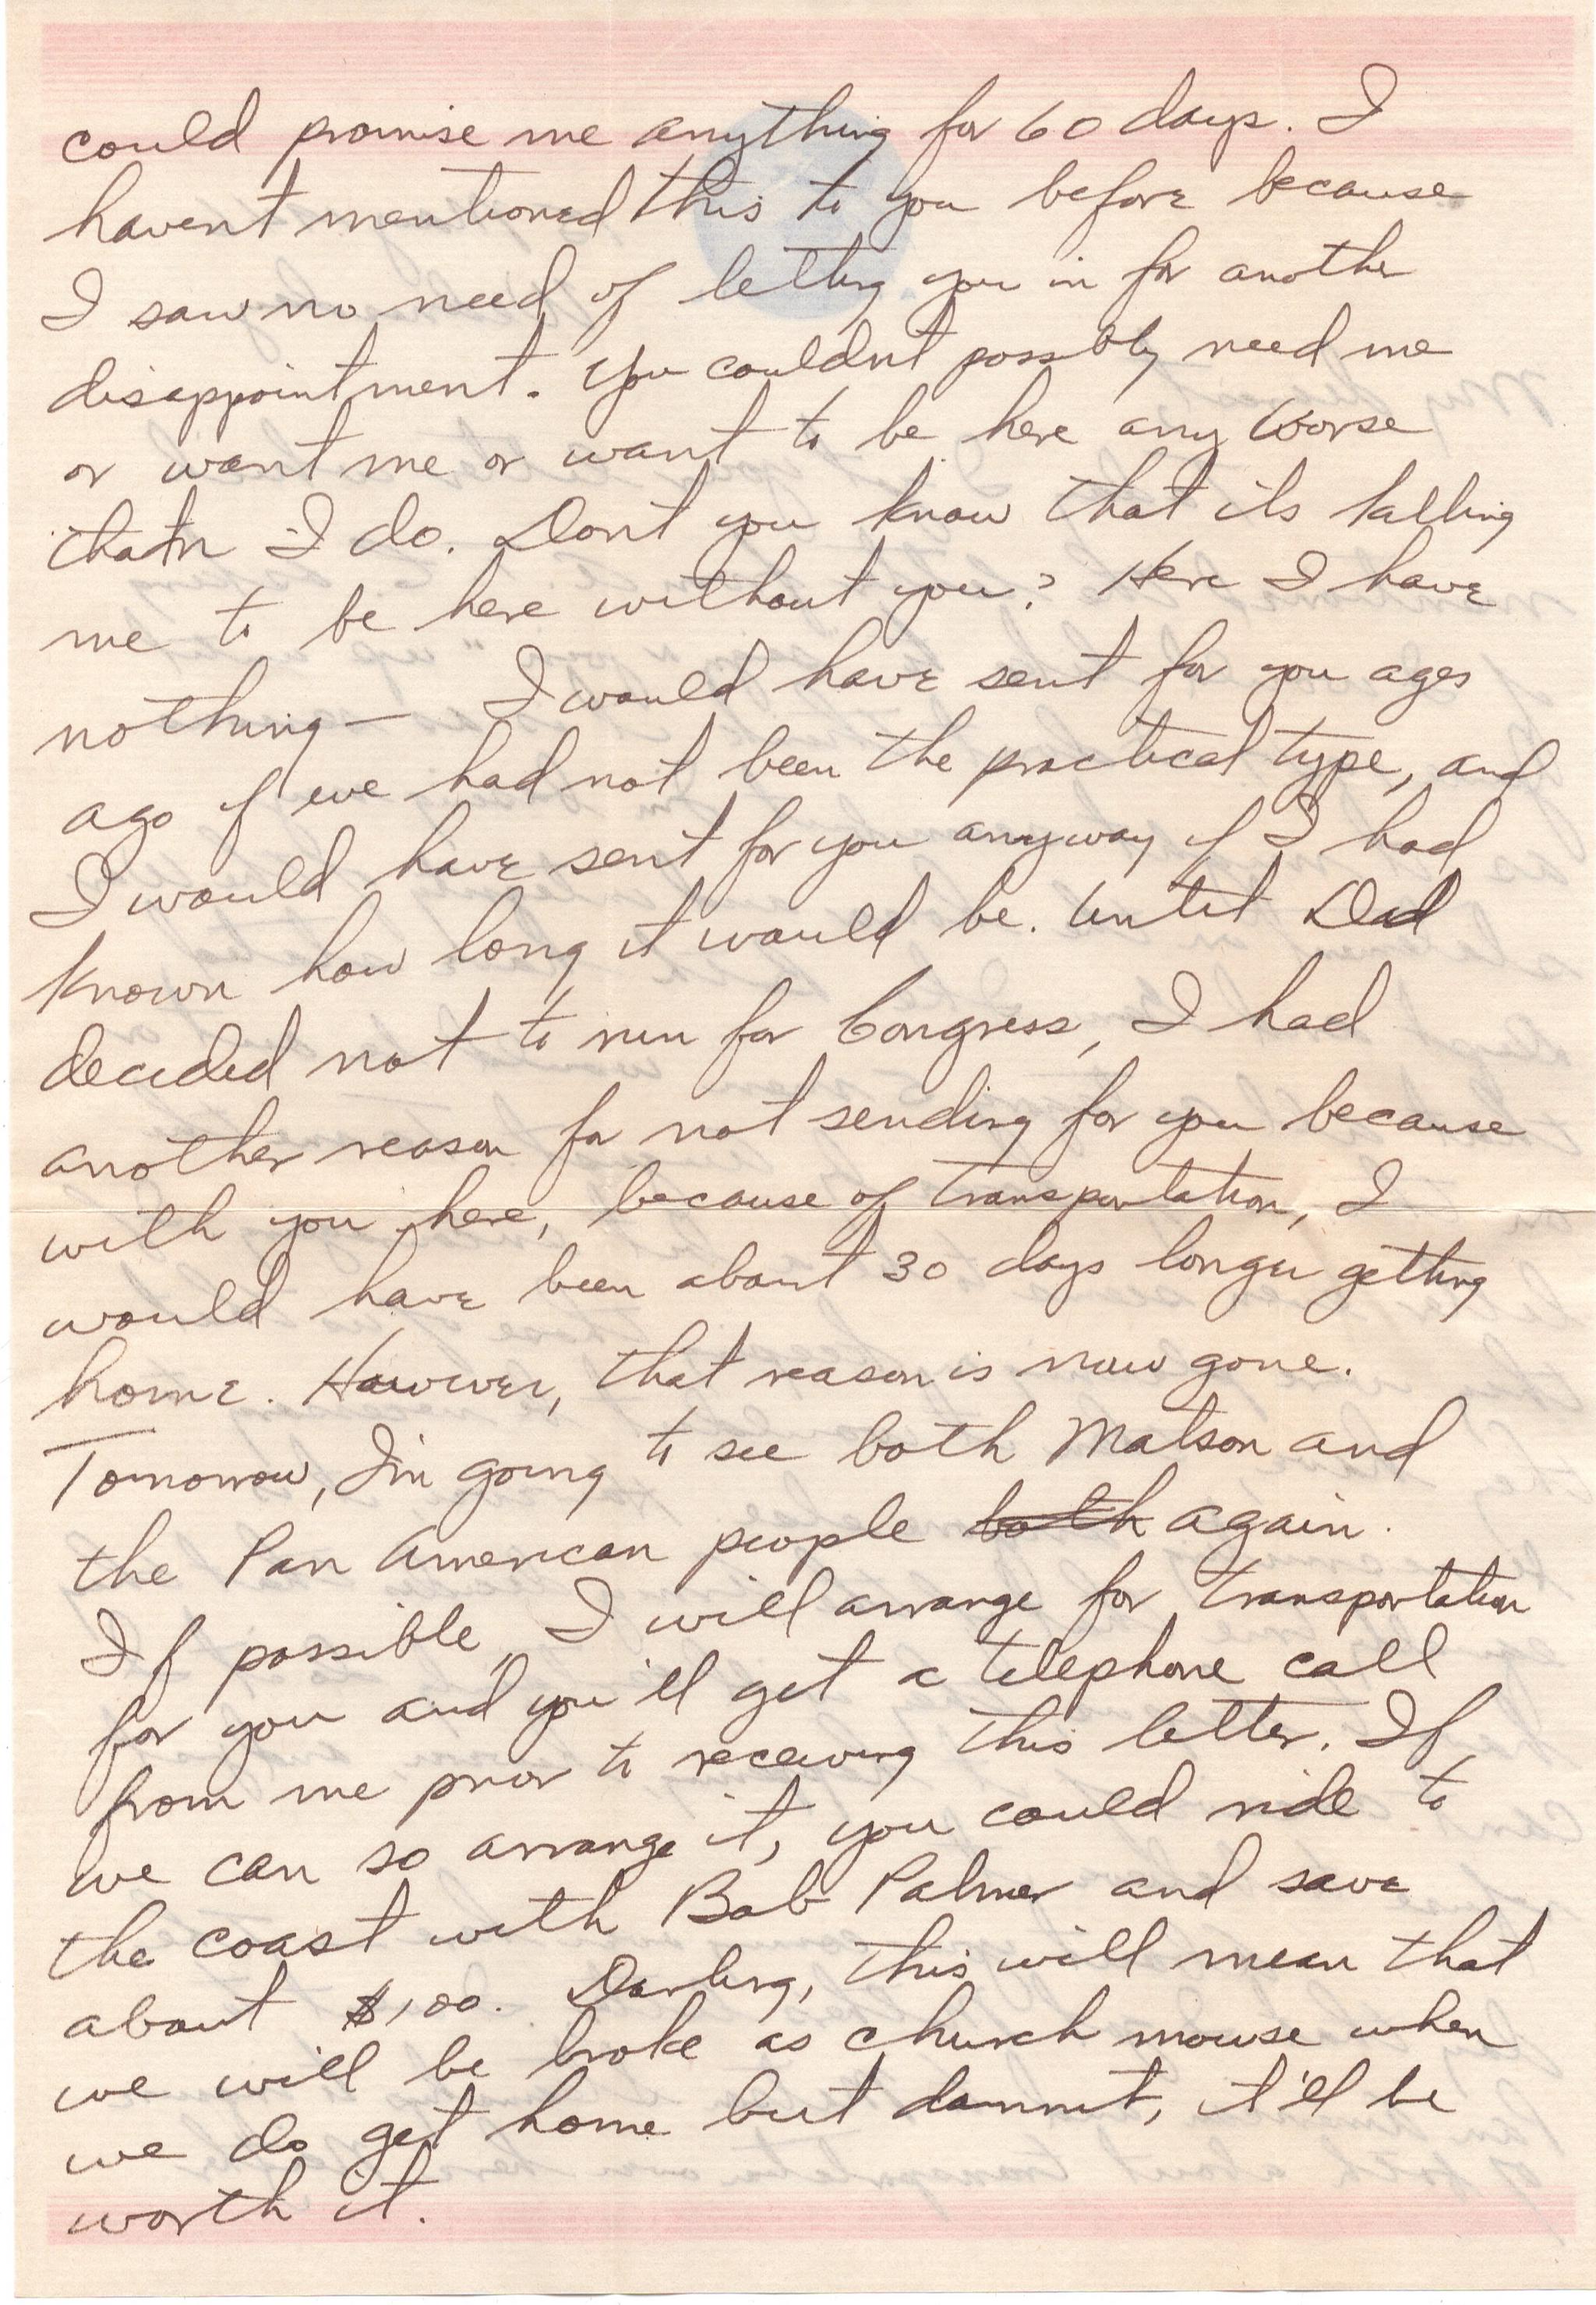 could promise me anything for 60 days. I
havent mentioned this to you before because
I saw no need of letting you in for another
disappointment. You couldnt possibly need me
or want me or want to be here any worse
than I do. Dont you know that its killing
me to be here without you? Here I have
nothing — I would have sent for you ages
ago if we had not been the practical type, and
I would have sent for you anyway if I had
known how long it would be. Until Dad
decided not to run for Congress, I had
another reason for not sending for you because
with you here, because of transportation, I
would have been about 30 days longer getting
home. However, that reason is now gone.
Tomorrow, I'm going to see both Matson and
the Pan American people both again.
If possible, I will arrange for transportation
for you and you'll get a telephone call
from me prior to receiving this letter. If
we can so arrange it, you could ride to
the coast with Bob Palmer and save
about $100. Darling, this will mean that
we will be broke as church mouse when
we do get home but dammit, it'll be
worth it.